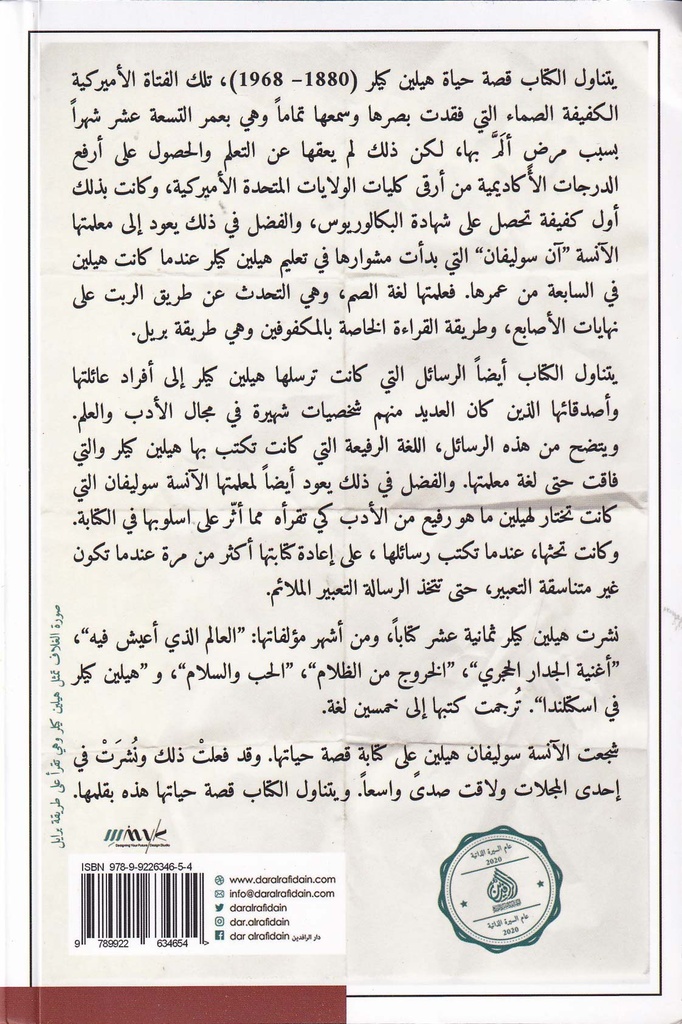 يتناول الكتاب قصة حياة هيلين كيلر (1880- 1968)، تلك الفتاة الأميركية
الكفيفة الصماء التي فقدت بصرها وسمعها تماماً وهي بعمر التسعة عشر شهراً
بسبب مرضٍ أَلَمَّ بها، لكن ذلك لم يعقها عن التعلم والحصول على أرفع
الدرجات الأكاديمية من أرقى كليات الولايات المتحدة الأميركية، وكانت بذلك
أول كفيفة تحصل على شهادة البكالوريوس، والفضل في ذلك يعود إلى معلمتها
الآنسة "آن سوليفان" التي بدأت مشوارها في تعليم هيلين كيلر عندما كانت هيلين
في السابعة من عمرها. فعلمتها لغة الصم، وهي التحدث عن طريق الربت على
نهايات الأصابع، وطريقة القراءة الخاصة بالمكفوفين وهي طريقة بريل.
يتناول الكتاب أيضاً الرسائل التي كانت ترسلها هيلين كيلر إلى أفراد عائلتها
وأصدقائها الذين كان العديد منهم شخصيات شهيرة في مجال الأدب والعلم.
ويتضح من هذه الرسائل، اللغة الرفيعة التي كانت تكتب بها هيلين كيلر والتي
فاقت حتى لغة معلمتها. والفضل في ذلك يعود أيضاً لمعلمتها الآنسة سوليفان التي
كانت تختار لهيلين ما هو رفيع من الأدب كي تقرأه مما أثّر على اسلوبها في الكتابة.
وكانت تحثها، عندما تكتب رسائلها ، على إعادة كتابتها أكثر من مرة عندما تكون
غير متناسقة التعبير، حتى تتخذ الرسالة التعبير الملائم.
نشرت هيلين كيلر ثمانية عشر كتاباً، ومن أشهر مؤلفاتها: "العالم الذي أعيش فيه"،
"أغنية الجدار الحجري"، "الخروج من الظلام"، "الحب والسلام"، و "هيلين كيلر
في اسكتلندا". تُرجمت كتبها إلى خمسين لغة.
شجعت الآنسة سوليفان هيلين على كتابة قصة حياتها. وقد فعلتْ ذلك ونُشرَتْ في
إحدى المجلات ولاقت صدىً واسعاً. ويتناول الكتاب قصة حياتها هذه بقلمها.
صورة الغلاف تمثل هيلين كيلر وهي تقرأ على طريقة برايل
Designing Your Future / Design Studio
ISBN 978-9-9226346-5-4
9 789922 634654
www.daralrafidain.com
info@daralrafidain.com
daralrafidain
dar.alrafidain
dar alrafidain دار الرافدين
عام السيرة الذاتية
2020
الرافدين
عام السيرة الذاتية
2020